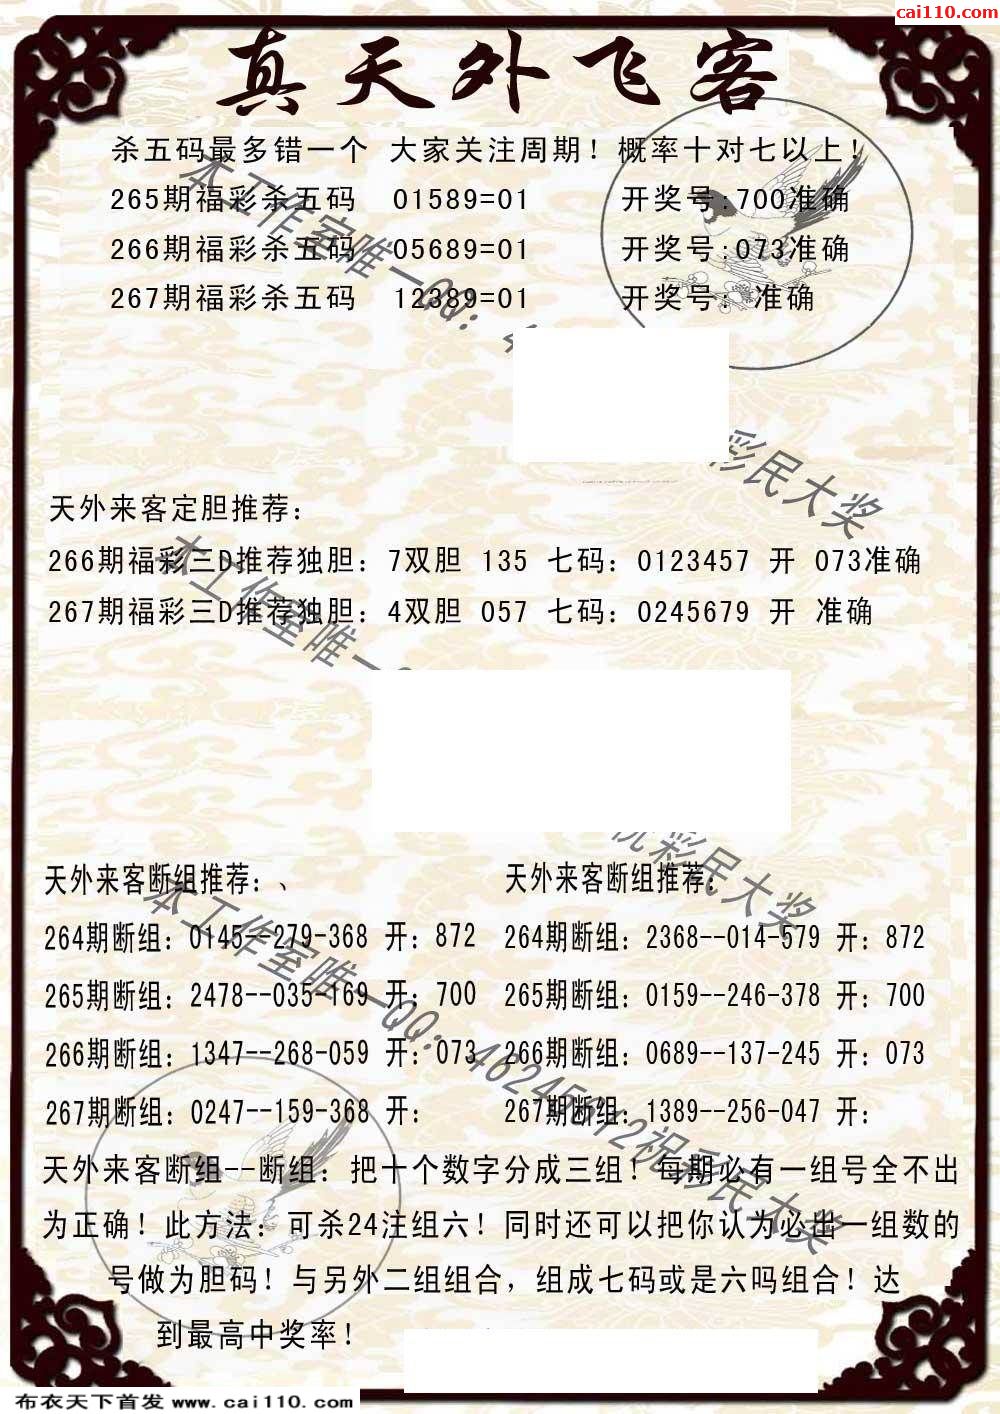 cai110.com
真天外飞客
杀五码最多错一个 大家关注周期！概率十对七以上！
265期福彩杀五码 01589=01 开奖号:700准确
266期福彩杀五码 05689=01 开奖号:073准确
267期福彩杀五码 12389=01 开奖号： 准确
天外来客定胆推荐：
266期福彩三D推荐独胆：7双胆 135 七码：0123457 开 073准确
267期福彩三D推荐独胆：4双胆 057 七码：0245679 开 准确
天外来客断组推荐：、
264期断组：0145--279-368 开：872
265期断组：2478--035-169 开：700
266期断组：1347--268-059 开：073
267期断组：0247--159-368 开：
天外来客断组推荐：
264期断组：2368--014-579 开：872
265期断组：0159--246-378 开：700
266期断组：0689--137-245 开：073
267期断组：1389--256-047 开：
天外来客断组--断组：把十个数字分成三组！每期必有一组号全不出
为正确！此方法：可杀24注组六！同时还可以把你认为必出一组数的
号做为胆码！与另外二组组合，组成七码或是六吗组合！达
到最高中奖率！
本工作室唯一QQ：
彩民大奖
本工作室唯一
祝彩民大奖
本工作室唯一QQ：
祝彩民大奖
布衣天下首发 www.cai110.com